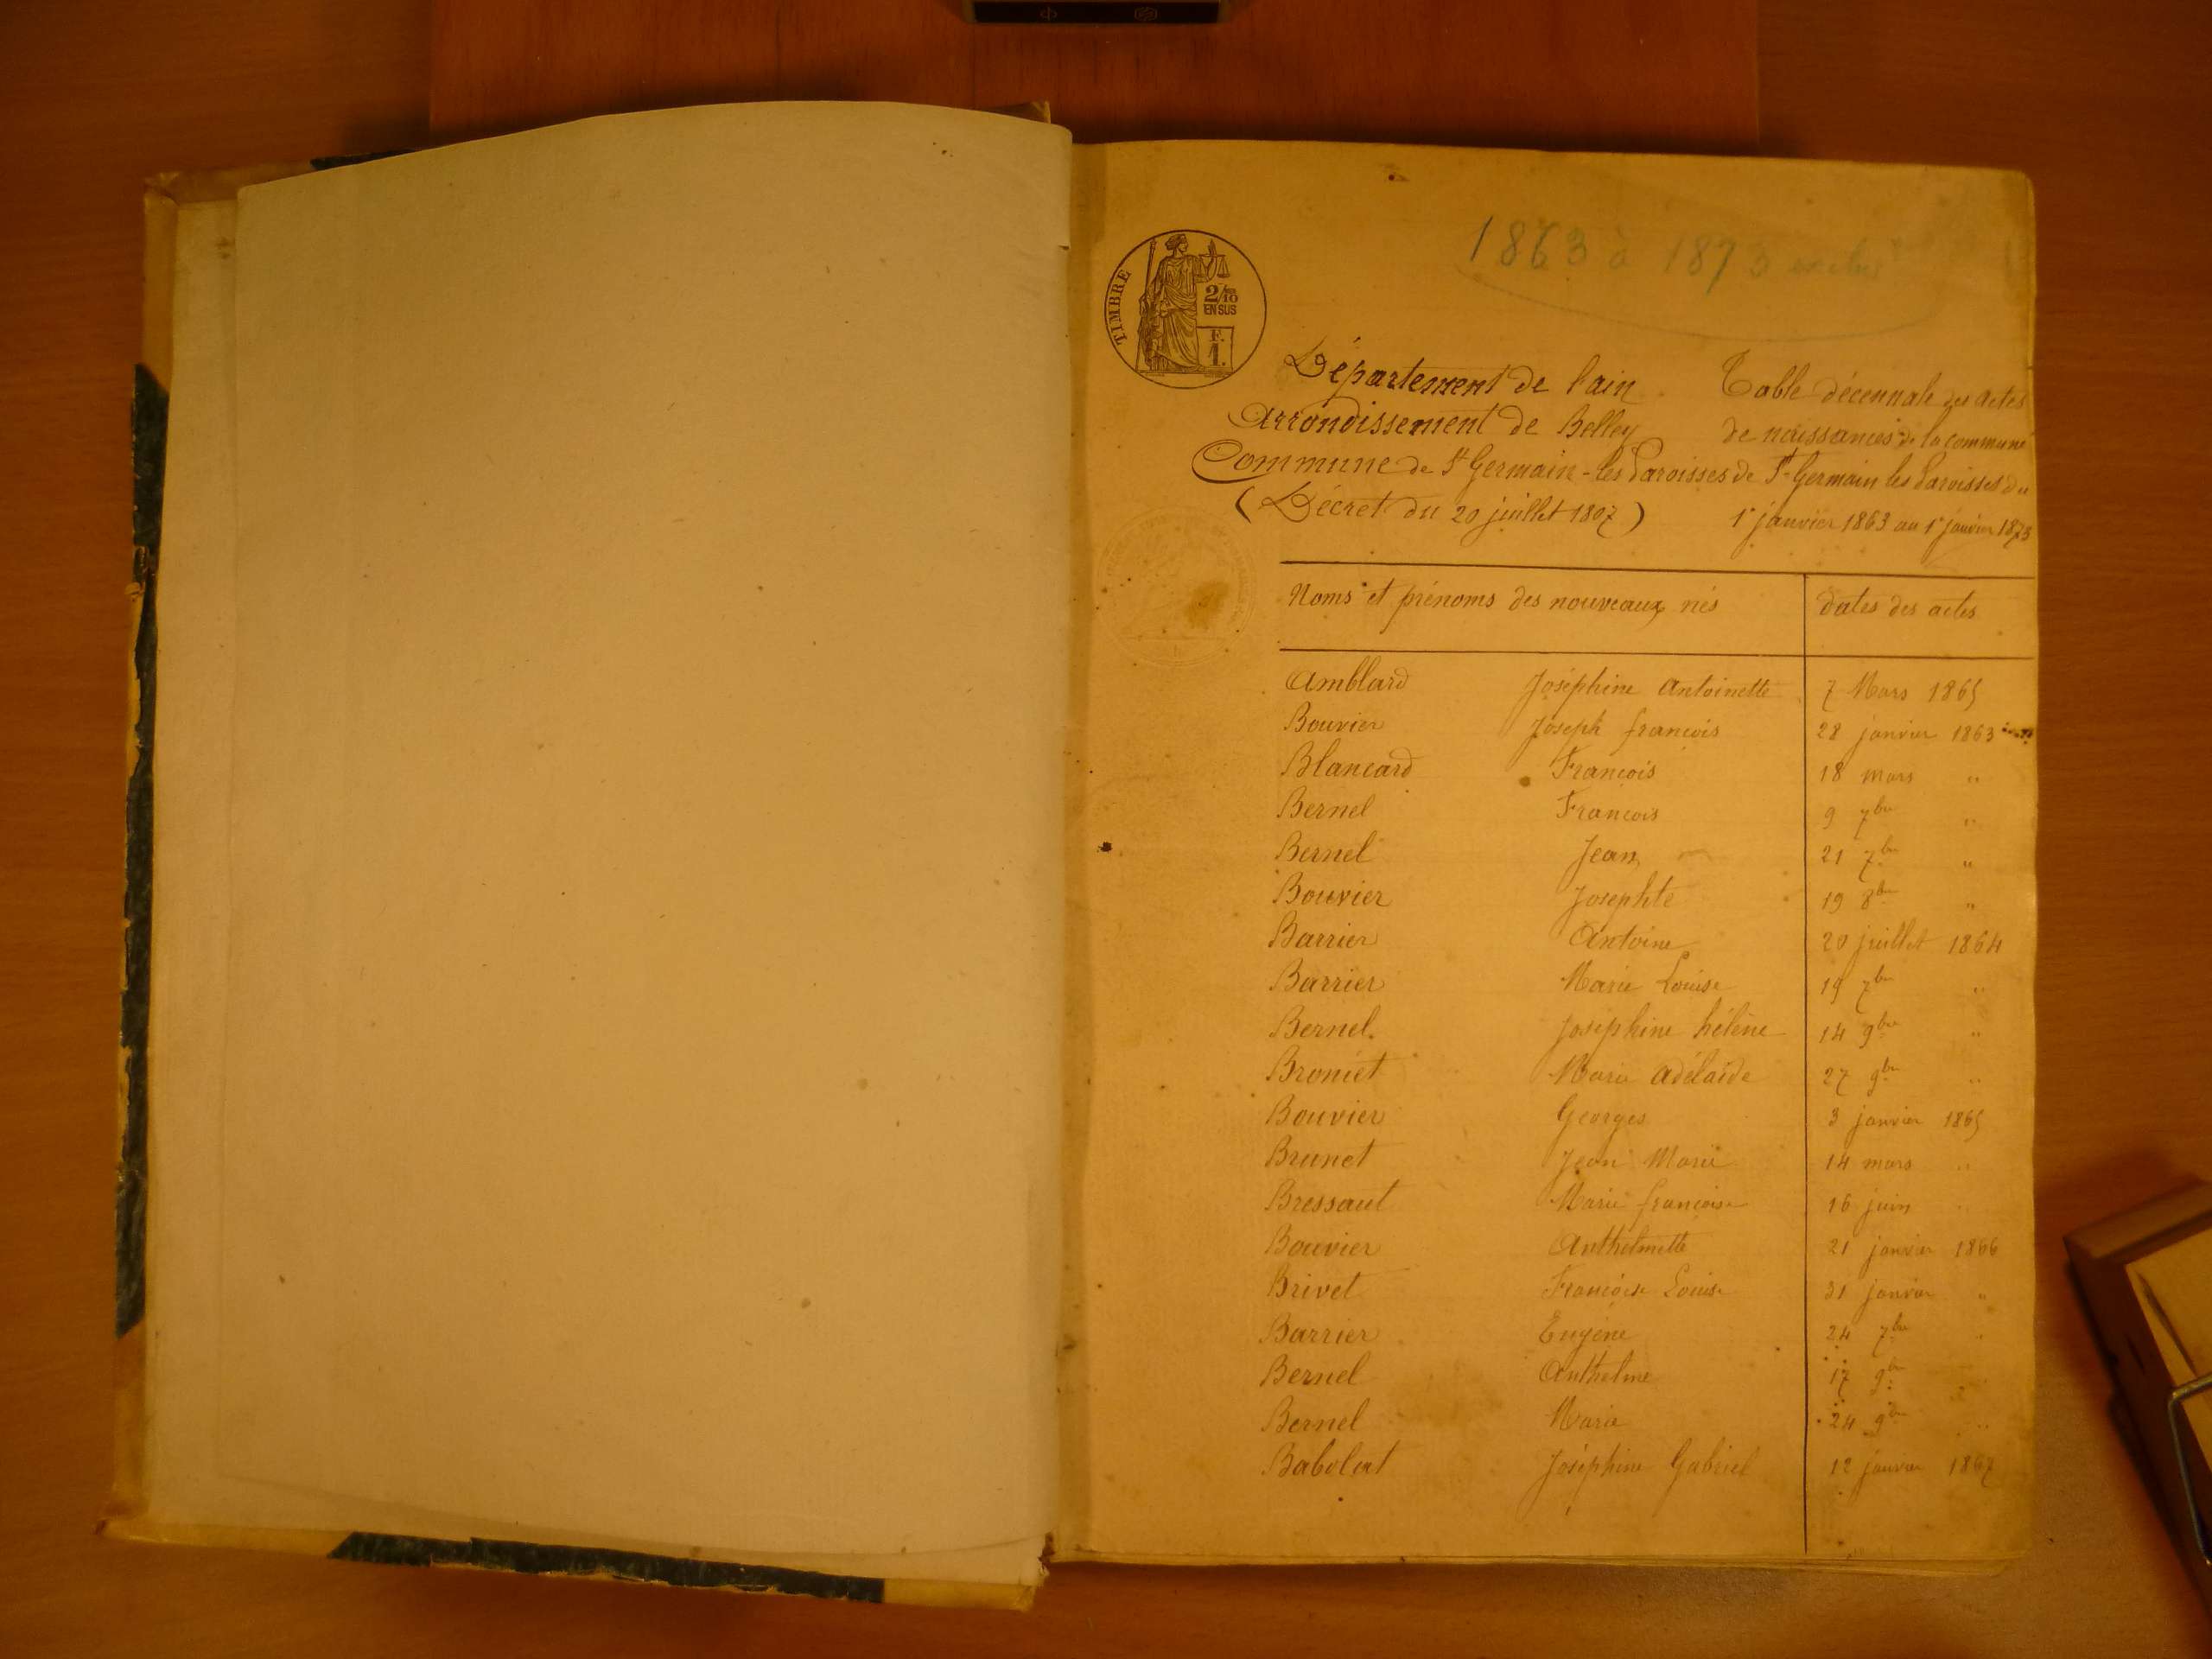 1863 à 1873 exclus
TIMBRE
2/10
EN SUS
F.
1.
Département de l'ain
Arrondissement de Belley
Commune de St Germain-les Paroisses
(Décret du 20 juillet 1807)
Table décennale des actes
de naissances de la commune
de St Germain les Paroisses du
1er janvier 1863 au 1er janvier 1873
Noms et prénoms des nouveaux nés dates des actes
Amblard Joséphine Antoinette 7 Mars 1865
Bouvier Joseph françois 28 janvier 1863
Blancard François 18 mars "
Bernel François 9 7bre "
Bernel Jean 21 7bre "
Bouvier Josephte 19 8bre "
Barrier Antoine 20 juillet 1864
Barrier Marie Louise 19 7bre "
Bernel Joséphine hélène 14 9bre "
Broniet Marie Adélaïde 27 9bre "
Bouvier Georges 3 janvier 1865
Brunet Jean Marie 14 mars "
Bressaut Marie françoise 16 juin "
Bouvier Anthelmette 21 janvier 1866
Brivet Françoise Louise 31 janvier "
Barrier Eugène 24 7bre "
Bernel Anthelme 17 9bre "
Bernel Marie 24 9bre "
Babolat Joséphine Gabriel 12 janvier 1867